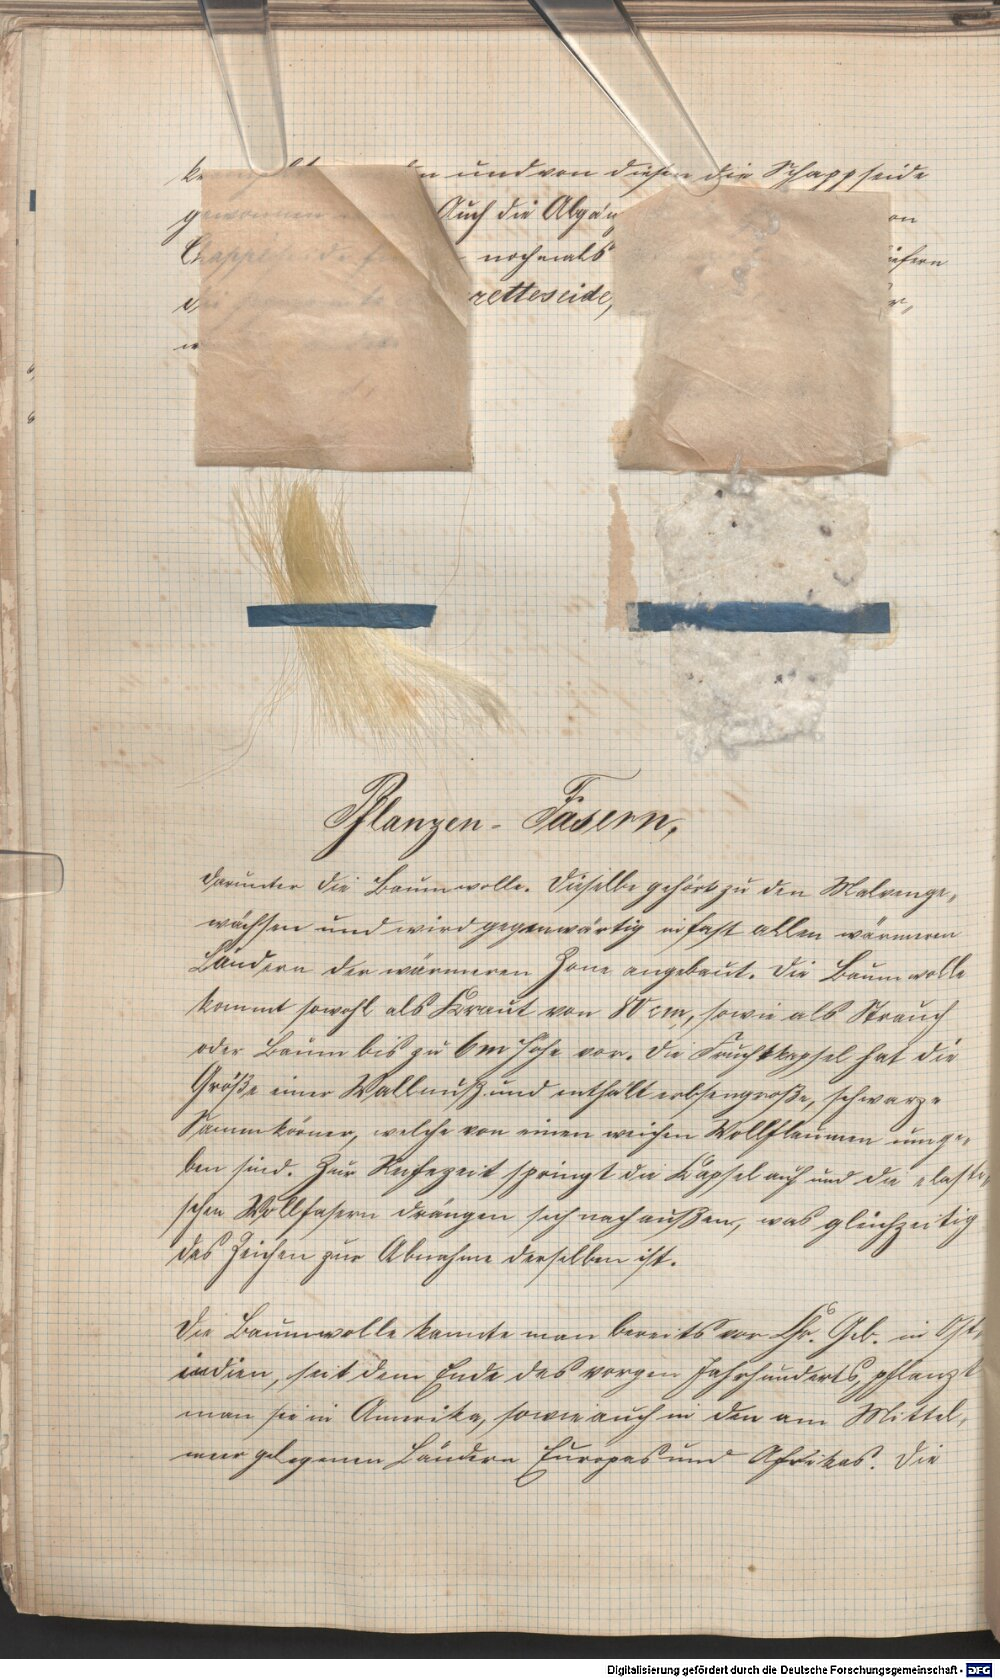 und von diesen die Schappseide
gewonnen Auch die Abgän
Chappeseide nochmals iefern
die retteseide,
Pflanzen-Fasern,
darunter die Baumwolle. Dieselbe gehört zu den Malvenge-
wächsen und wird gegenwärtig in fast allen wärmeren
Ländern der wärmeren Zone angebaut. Die Baumwolle
kommt sowohl als Kraut von 80 cm, sowie als Strauch
oder Baum bis zu 6 m Höhe vor. Die Fruchtkapsel hat die
Größe einer Wallnuß und enthält erbsengroße, schwarze
Samenkörner, welche von einen weichen Wollflaumen umge-
ben sind. Zur Reifezeit springt die Kapsel auf und die elasti-
schen Wollfasern drängen sich nach außen, was gleichzeitig
das Zeichen zur Abnahme derselben ist.
Die Baumwolle kannte man bereits vor Chr. Geb. in Ost-
indien, seit dem Ende des vorgen Jahrhunderts, pflanzt
man sie in Amerika, sowie auch in den am Mittel-
meer gelegenen Ländern Europas und Afrikas. Die
Digitalisierung gefördert durch die Deutsche Forschungsgemeinschaft - DFG